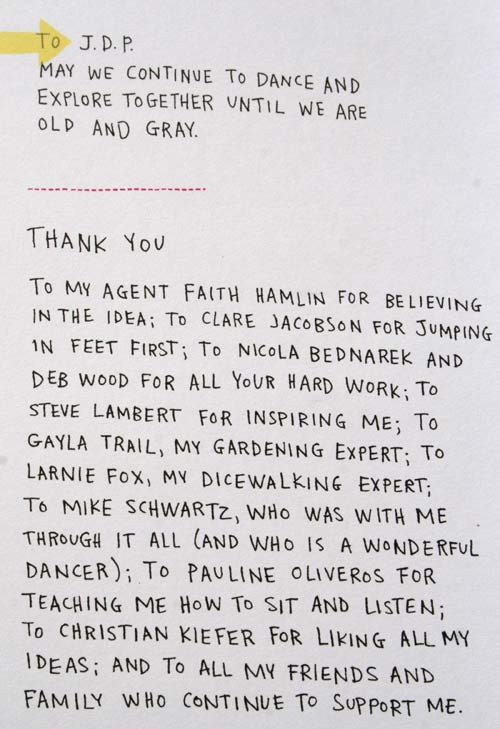 TO J.D.P.
MAY WE CONTINUE TO DANCE AND
EXPLORE TOGETHER UNTIL WE ARE
OLD AND GRAY.
THANK YOU
TO MY AGENT FAITH HAMLIN FOR BELIEVING
IN THE IDEA; TO CLARE JACOBSON FOR JUMPING
IN FEET FIRST; TO NICOLA BEDNAREK AND
DEB WOOD FOR ALL YOUR HARD WORK; TO
STEVE LAMBERT FOR INSPIRING ME; TO
GAYLA TRAIL, MY GARDENING EXPERT; TO
LARNIE FOX, MY DICEWALKING EXPERT;
TO MIKE SCHWARTZ, WHO WAS WITH ME
THROUGH IT ALL (AND WHO IS A WONDERFUL
DANCER); TO PAULINE OLIVEROS FOR
TEACHING ME HOW TO SIT AND LISTEN;
TO CHRISTIAN KIEFER FOR LIKING ALL MY
IDEAS; AND TO ALL MY FRIENDS AND
FAMILY WHO CONTINUE TO SUPPORT ME.